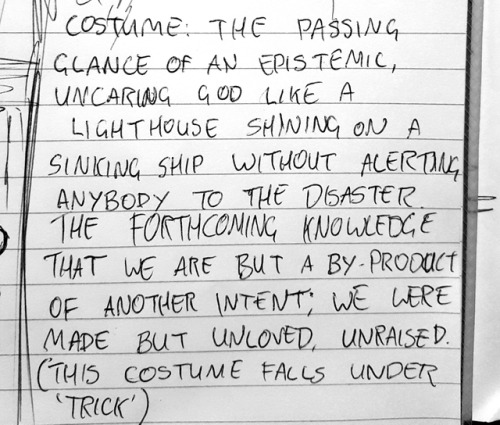 COSTUME: THE PASSING
GLANCE OF AN EPISTEMIC,
UNCARING GOD LIKE A
LIGHTHOUSE SHINING ON A
SINKING SHIP WITHOUT ALERTING
ANYBODY TO THE DISASTER.
THE FORTHCOMING KNOWLEDGE
THAT WE ARE BUT A BY-PRODUCT
OF ANOTHER INTENT; WE WERE
MADE BUT UNLOVED, UNRAISED.
(THIS COSTUME FALLS UNDER
'TRICK')